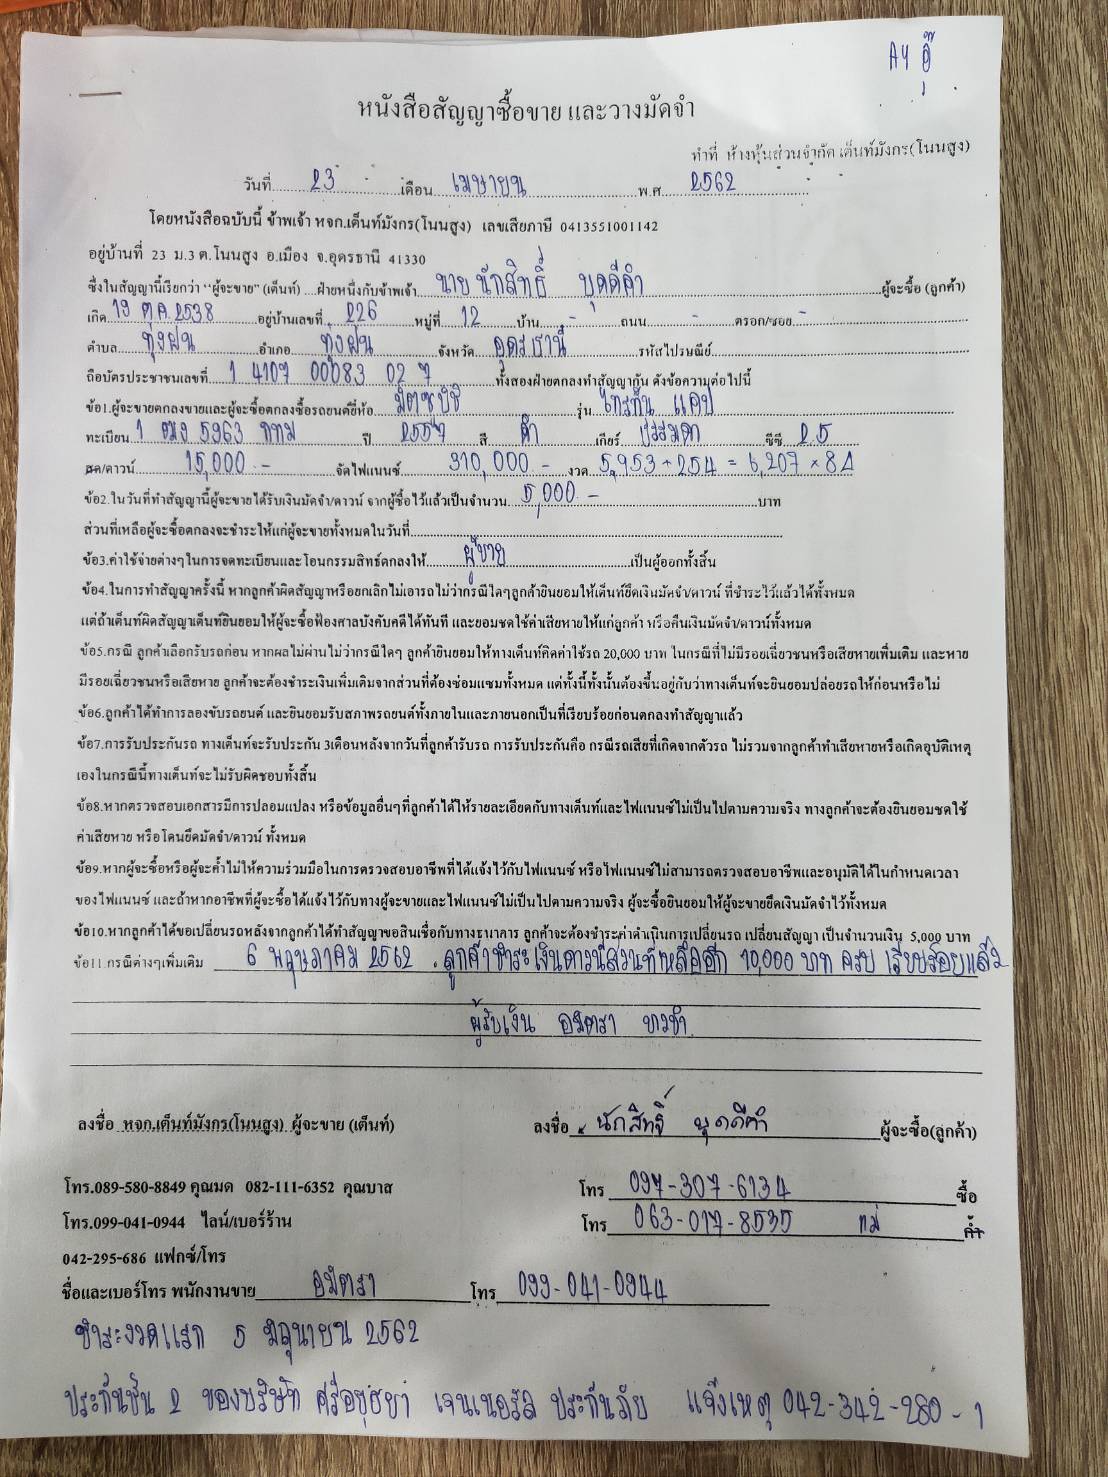 AY อุ๊
หนังสือสัญญาซื้อขาย และวางมัดจำ
ทำที่ ห้างหุ้นส่วนจำกัด เต็นท์มังกร(โนนสูง)
วันที่ 23 เดือน เมษายน พ.ศ. 2562
โดยหนังสือฉบับนี้ ข้าพเจ้า หจก.เต็นท์มังกร(โนนสูง) เลขเสียภาษี 0413551001142
อยู่บ้านที่ 23 ม.3 ต.โนนสูง อ.เมือง จ.อุดรธานี 41330
ซึ่งในสัญญานี้เรียกว่า "ผู้จะขาย" (เต็นท์) ....ฝ่ายหนึ่งกับข้าพเจ้า นาย นักสิทธิ์ บุดดีคำ ผู้จะซื้อ (ลูกค้า)
เกิด 19 ต.ค. 2538 อยู่บ้านเลขที่ 226 หมู่ที่ 12 บ้าน - ถนน - ตรอก/ซอย -
ตำบล ทุ่งฝน อำเภอ ทุ่งฝน จังหวัด อุดรธานี รหัสไปรษณีย์
ถือบัตรประชาชนเลขที่ 1 4107 00083 02 7 ทั้งสองฝ่ายตกลงทำสัญญากัน ดังข้อความต่อไปนี้
ข้อ1.ผู้จะขายตกลงขายและผู้จะซื้อตกลงซื้อรถยนต์ยี่ห้อ มิตซูบิชิ รุ่น ไทรทัน แคป
ทะเบียน 1 ฒง 5963 กทม ปี 2557 สี ดำ เกียร์ ธรรมดา ซีซี 2.5
สด/ดาวน์ 15,000.- จัดไฟแนนซ์ 310,000.- งวด 5,953 + 254 = 6,207 × 84
ข้อ2.ในวันที่ทำสัญญานี้ผู้จะขายได้รับเงินมัดจำ/ดาวน์ จากผู้ซื้อไว้แล้วเป็นจำนวน 5,000.- บาท
ส่วนที่เหลือผู้จะซื้อตกลงจะชำระให้แก่ผู้จะขายทั้งหมดในวันที่
ข้อ3.ค่าใช้จ่ายต่างๆในการจดทะเบียนและโอนกรรมสิทธ์ตกลงให้ ผู้ขาย เป็นผู้ออกทั้งสิ้น
ข้อ4.ในการทำสัญญาครั้งนี้ หากลูกค้าผิดสัญญาหรือยกเลิกไม่เอารถไม่ว่ากรณีใดๆลูกค้ายินยอมให้เต็นท์ยึดเงินมัดจำ/ดาวน์ ที่ชำระไว้แล้วได้ทั้งหมด
แต่ถ้าเต็นท์ผิดสัญญาเต็นท์ยินยอมให้ผู้จะซื้อฟ้องศาลบังคับคดีได้ทันที และยอมชดใช้ค่าเสียหายให้แก่ลูกค้า หรือคืนเงินมัดจำ/ดาวน์ทั้งหมด
ข้อ5.กรณี ลูกค้าเลือกรับรถก่อน หากผลไม่ผ่านไม่ว่ากรณีใดๆ ลูกค้ายินยอมให้ทางเต็นท์คิดค่าใช้รถ 20,000 บาท ในกรณีที่ไม่มีรอยเฉี่ยวชนหรือเสียหายเพิ่มเติม และหาย
มีรอยเฉี่ยวชนหรือเสียหาย ลูกค้าจะต้องชำระเงินเพิ่มเติมจากส่วนที่ต้องซ่อมแซมทั้งหมด แต่ทั้งนี้ทั้งนั้นต้องขึ้นอยู่กับว่าทางเต็นท์จะยินยอมปล่อยรถให้ก่อนหรือไม่
ข้อ6.ลูกค้าได้ทำการลองขับรถยนต์ และยินยอมรับสภาพรถยนต์ทั้งภายในและภายนอกเป็นที่เรียบร้อยก่อนตกลงทำสัญญาแล้ว
ข้อ7.การรับประกันรถ ทางเต็นท์จะรับประกัน 3เดือนหลังจากวันที่ลูกค้ารับรถ การรับประกันคือ กรณีรถเสียที่เกิดจากตัวรถ ไม่รวมจากลูกค้าทำเสียหายหรือเกิดอุบัติเหตุ
เองในกรณีนี้ทางเต็นท์จะไม่รับผิดชอบทั้งสิ้น
ข้อ8.หากตรวจสอบเอกสารมีการปลอมแปลง หรือข้อมูลอื่นๆที่ลูกค้าได้ให้รายละเอียดกับทางเต็นท์และไฟแนนซ์ไม่เป็นไปตามความจริง ทางลูกค้าจะต้องยินยอมชดใช้
ค่าเสียหาย หรือโดนยึดมัดจำ/ดาวน์ ทั้งหมด
ข้อ9.หากผู้จะซื้อหรือผู้จะค้ำไม่ให้ความร่วมมือในการตรวจสอบอาชีพที่ได้แจ้งไว้กับไฟแนนซ์ หรือไฟแนนซ์ไม่สามารถตรวจสอบอาชีพและอนุมัติได้ในกำหนดเวลา
ของไฟแนนซ์ และถ้าหากอาชีพที่ผู้จะซื้อได้แจ้งไว้กับทางผู้จะขายและไฟแนนซ์ไม่เป็นไปตามความจริง ผู้จะซื้อยินยอมให้ผู้จะขายยึดเงินมัดจำไว้ทั้งหมด
ข้อ10.หากลูกค้าได้ขอเปลี่ยนรถหลังจากลูกค้าได้ทำสัญญาขอสินเชื่อกับทางธนาคาร ลูกค้าจะต้องชำระค่าดำเนินการเปลี่ยนรถ เปลี่ยนสัญญา เป็นจำนวนเงิน 5,000 บาท
ข้อ11.กรณีต่างๆเพิ่มเติม 6 พฤษภาคม 2562 . ลูกค้าชำระเงินดาวน์ส่วนที่เหลืออีก 10,000 บาท ครบ เรียบร้อยแล้ว
ผู้รับเงิน อมิตรา
ลงชื่อ หจก.เต็นท์มังกร(โนนสูง) ผู้จะขาย (เต็นท์) ลงชื่อ นักสิทธิ์ บุดดีคำ ผู้จะซื้อ(ลูกค้า)
โทร.089-580-8849 คุณมด 082-111-6352 คุณบาส โทร 097-307-6134 ซื้อ
โทร.099-041-0944 ไลน์/เบอร์ร้าน โทร 063-017-8535 แม่ ค้ำ
042-295-686 แฟกซ์/โทร
ชื่อและเบอร์โทร พนักงานขาย อมิตรา โทร 099-041-0944
ชำระงวดแรก 5 มิถุนายน 2562
ประกันชั้น 2 ของบริษัท ศรีอยุธยา เจนเนอรัล ประกันภัย แจ้งเหตุ 042-342-280-1